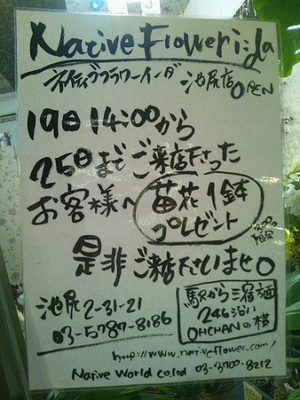 Native Flower i:da
ネイティブフラワーイーダ 池尻店OPEN
19日 14:00から
25日までご来店下さった
お客様へ 苗花1鉢
プレゼント
是非ご来店下さいませ。
池尻2-31-21
03-5787-8186
駅から三宿方面
246沿い
OHCHANの横
http://www.nativeflower.com/
Native World co.ltd 03-3700-8212